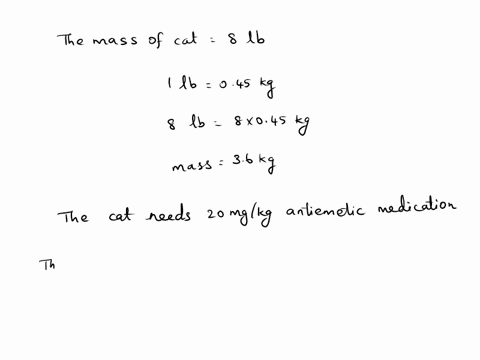 The mass of cat = 8 lb
1 lb = 0.45 kg
8 lb = 8 x 0.45 kg
mass = 3.6 kg
The cat needs 20 mg/kg antiemetic medication
Th